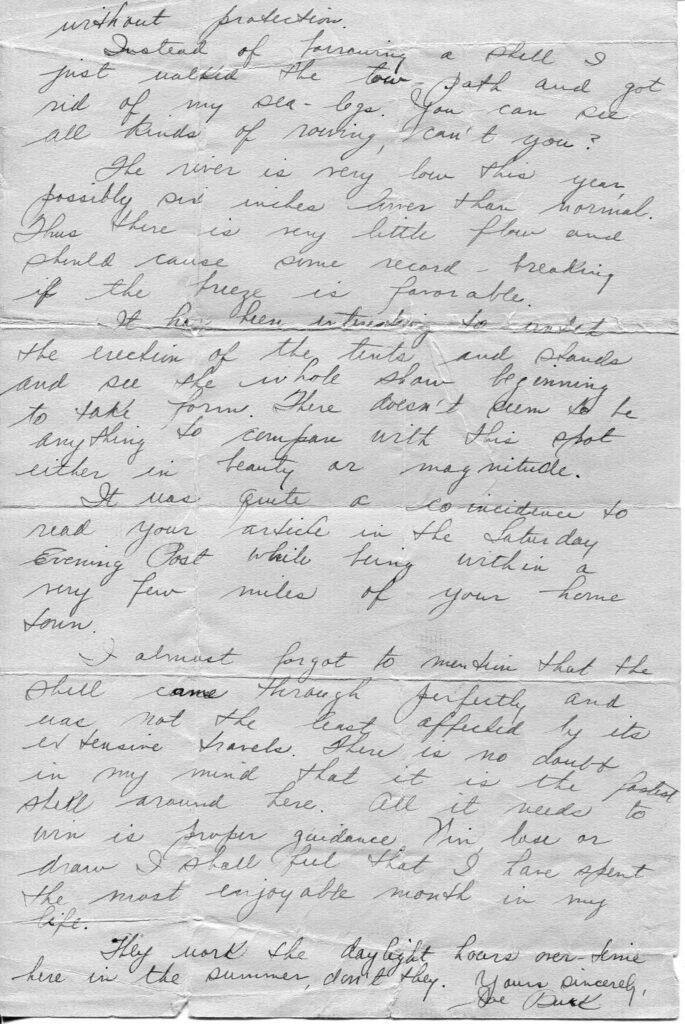 without protection.
Instead of borrowing a shell I
just walked the tow-path and got
rid of my sea-legs. You can see
all kinds of rowing, can't you?
The river is very low this year,
possibly six inches lower than normal.
Thus there is very little flow and
should cause some record-breaking
if the breeze is favorable.
It has been interesting to watch
the erection of the tents and stands
and see the whole show beginning
to take form. There doesn't seem to be
anything to compare with this spot
either in beauty or magnitude.
It was quite a coincidence to
read your article in the Saturday
Evening Post while being within a
very few miles of your home
town.
I almost forgot to mention that the
shell came through perfectly and
was not the least affected by its
extensive travels. There is no doubt
in my mind that it is the fastest
shell around here. All it needs to
win is proper guidance. Win, lose or
draw I shall feel that I have spent
the most enjoyable month in my
life.
They work the daylight hours over-time
here in the summer, don't they. Yours sincerely,
Joe Burk